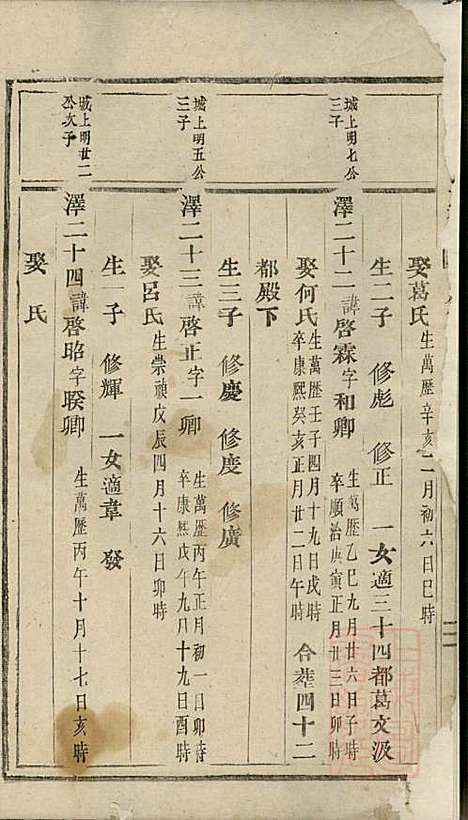 娶葛氏 生萬歷辛亥二月初六日巳時
生二子 修彪 修正 一女適三十四都葛文汲
城上明七公三子
澤二十二 諱啓霖字和卿 生萬歷乙巳九月廿六日子時 卒順治庚寅正月廿三日卯時
娶何氏 生萬歷壬子四月十九日戌時 卒康熙癸亥正月廿二日午時 合塟四十二
都殿下
生三子 修慶 修度 修廣
城上明五公三子
澤二十三 諱啓正字一卿 生萬歷丙午正月初一日卯時 卒康熙戊午九月十九日酉時
娶呂氏 生崇禎戊辰四月十六日卯時
生一子 修輝 一女適韋發
城上明廿二公次子
澤二十四 諱啓昭字睽卿 生萬歷丙午十月十七日亥時
娶 氏